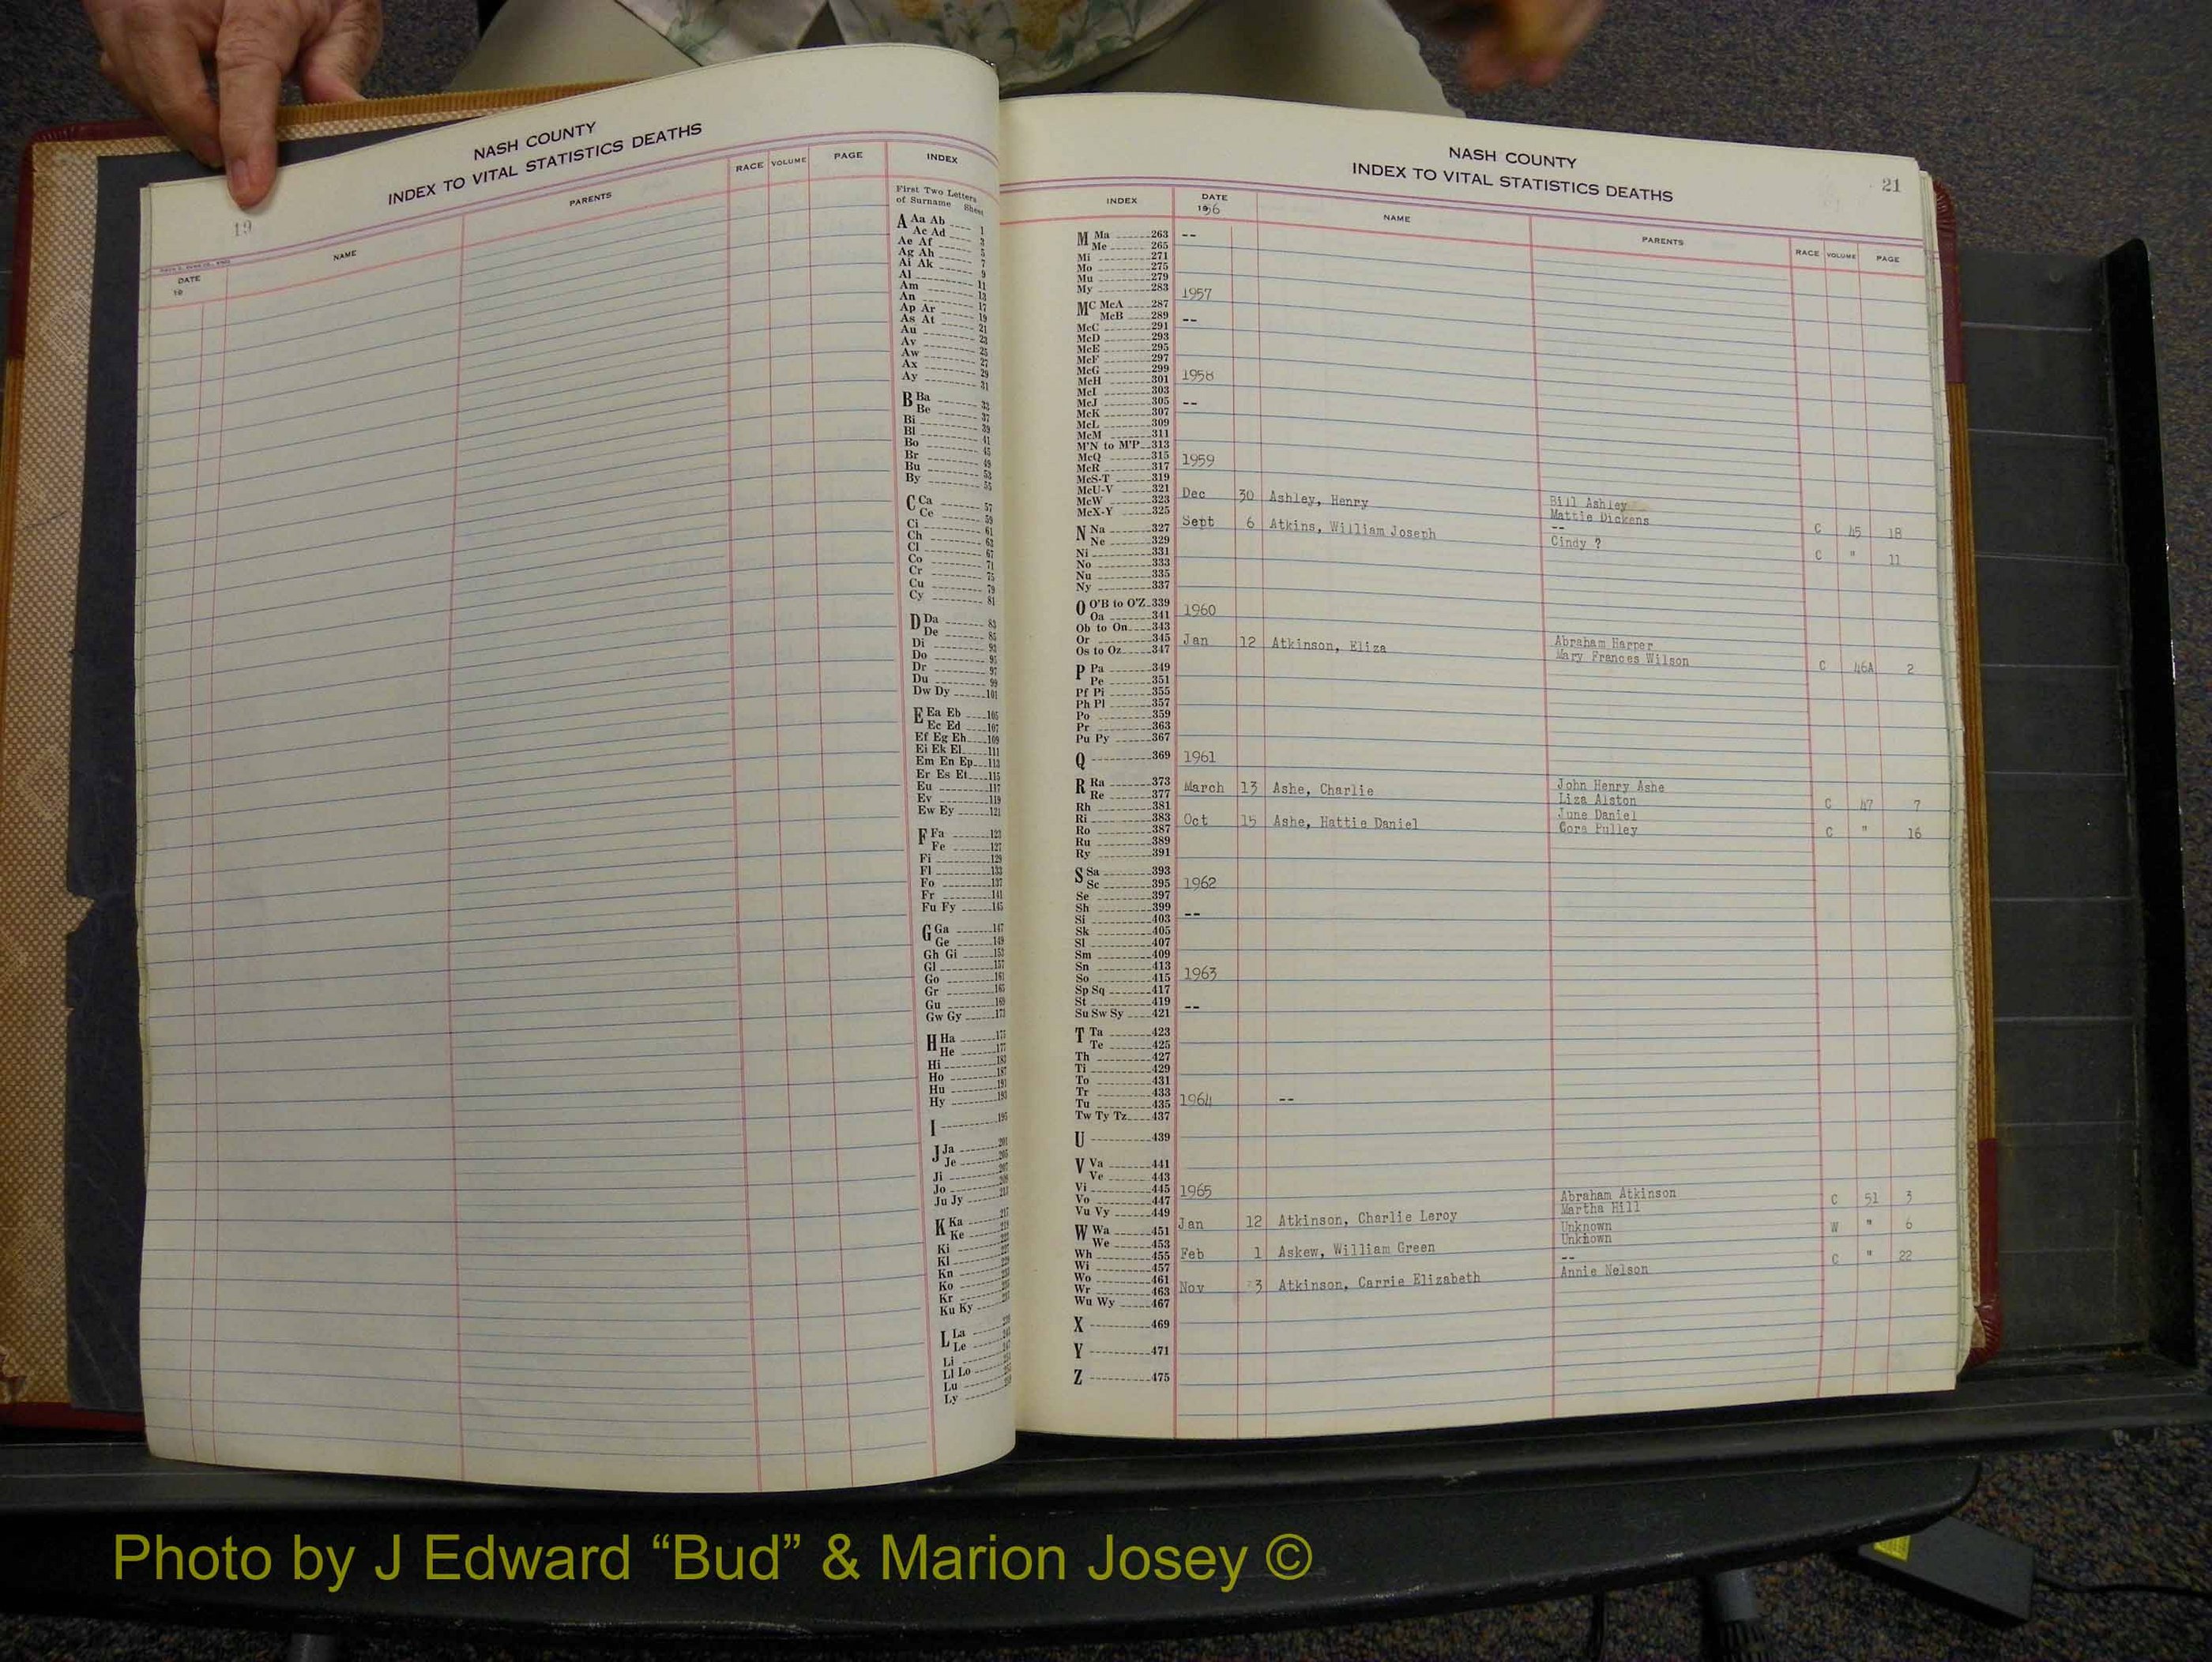 NASH COUNTY
INDEX TO VITAL STATISTICS DEATHS
19
DATE
19
NAME
PARENTS
RACE
VOLUME
PAGE
INDEX
First Two Letters
of Surname Sheet
A Aa Ab 1
Ac Ad 3
Ae Af 5
Ag Ah 7
Ai Ak 9
Al 11
Am 13
An 17
Ap Ar 19
As At 21
Au 23
Av 25
Aw 27
Ax 29
Ay 31
B Ba 33
Be 37
Bi 39
Bl 41
Bo 45
Br 49
Bu 53
By 55
C Ca 57
Ce 59
Ci 61
Ch 63
Cl 67
Co 71
Cr 75
Cu 79
Cy 81
D Da 83
De 85
Di 93
Do 95
Dr 97
Du 99
Dw Dy 101
E Ea Eb 105
Ec Ed 107
Ef Eg Eh 109
Ei Ek El 111
Em En Ep 113
Er Es Et 115
Eu 117
Ev 119
Ew Ey 121
F Fa 123
Fe 127
Fi 129
Fl 133
Fo 137
Fr 141
Fu Fy 145
G Ga 147
Ge 149
Gh Gi 153
Gl 157
Go 161
Gr 165
Gu 169
Gw Gy 173
H Ha 175
He 177
Hi 183
Ho 187
Hu 191
Hy 193
I 195
J Ja 201
Je 205
Ji
Jo
Ju Jy
K Ka 217
Ke
Ki
Kl
Kn
Ko
Kr
Ku Ky
L La
Le
Li
Ll Lo
Lu
Ly
NASH COUNTY
INDEX TO VITAL STATISTICS DEATHS
21
INDEX
DATE
1956
NAME
PARENTS
RACE
VOLUME
PAGE
M Ma 263
Me 265
Mi 271
Mo 275
Mu 279
My 283
MC McA 287
McB 289
McC 291
McD 293
McE 295
McF 297
McG 299
McH 301
McI 303
McJ 305
McK 307
McL 309
McM 311
M'N to M'P 313
McQ 315
McR 317
McS-T 319
McU-V 321
McW 323
McX-Y 325
N Na 327
Ne 329
Ni 331
No 333
Nu 335
Ny 337
O O'B to O'Z 339
Oa 341
Ob to On 343
Or 345
Os to Oz 347
P Pa 349
Pe 351
Pf Pi 355
Ph Pl 357
Po 359
Pr 363
Pu Py 367
Q 369
R Ra 373
Re 377
Rh 381
Ri 383
Ro 387
Ru 389
Ry 391
S Sa 393
Sc 395
Se 397
Sh 399
Si 403
Sk 405
Sl 407
Sm 409
Sn 413
So 415
Sp Sq 417
St 419
Su Sw Sy 421
T Ta 423
Te 425
Th 427
Ti 429
To 431
Tr 433
Tu 435
Tw Ty Tz 437
U 439
V Va 441
Ve 443
Vi 445
Vo 447
Vu Vy 449
W Wa 451
We 453
Wh 455
Wi 457
Wo 461
Wr 463
Wu Wy 467
X 469
Y 471
Z 475
--
1957
--
1958
--
1959
Dec 30 Ashley, Henry Bill Ashley
Mattie Dickens C 45 18
Sept 6 Atkins, William Joseph --
Cindy ? C " 11
1960
Jan 12 Atkinson, Eliza Abraham Harper
Mary Frances Wilson C 46A 2
1961
March 13 Ashe, Charlie John Henry Ashe
Liza Alston C 47 7
Oct 15 Ashe, Hattie Daniel June Daniel
Cora Pulley C " 16
1962
--
1963
--
1964 --
1965
Jan 12 Atkinson, Charlie Leroy Abraham Atkinson C 51 3
Martha Hill
Feb 1 Askew, William Green Unknown W " 6
Unknown
Nov 3 Atkinson, Carrie Elizabeth -- C " 22
Annie Nelson
Photo by J Edward “Bud” & Marion Josey ©